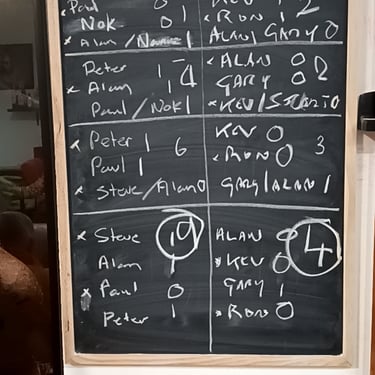 Paul 0 KEV 1 2
Nok 0 1 x RON 1
x Alan / Name 1 ALAN / GARY 0
Peter 1 - 4 x ALAN 0 2
x Alan 1 GARY 0
Paul / Nok 1 x KEV / 0
x Peter 1 6 KEV 0 3
Paul 1 x RON 0
x Steve / Alan 0 GARY / ALAN 1
x Steve 1 9 ALAN 0 4
Alan 1 x KEV 0
x Paul 0 GARY 1
Peter 1 x RON 0